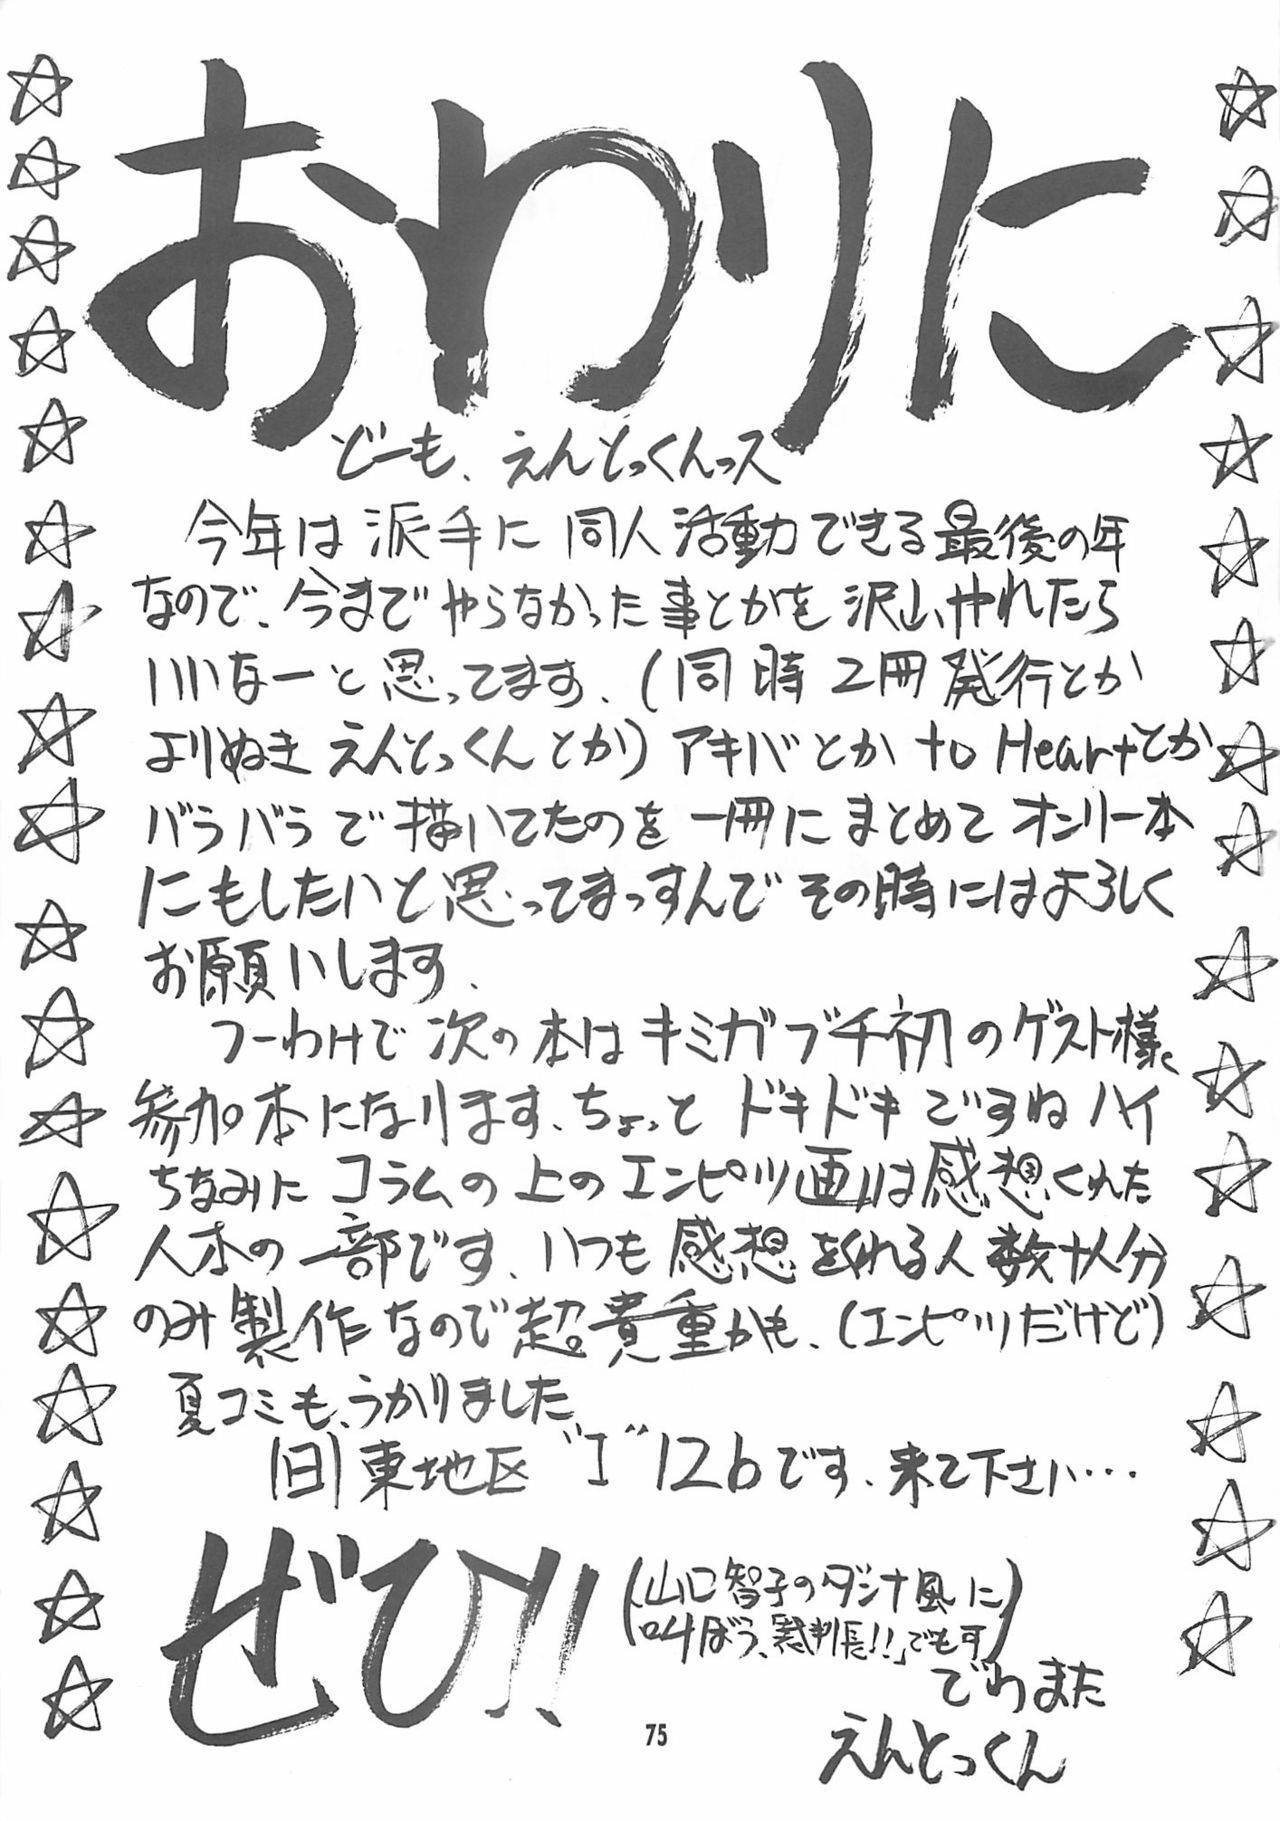 おわりに
どーも、えんとっくんっス
今年は派手に同人活動できる最後の年
なので、今までやらなかった事とかを沢山、やれたら
いいなーと思ってます、(同時2冊発行とか
よりぬきえんとっくんとか)アキバとか to Heartとか
バラバラで描いてたのを一冊にまとめてオンリー本
にもしたいと思ってまっすんでその時にはよろしく
お願いします、
つーわけで次の本はキミガブチ初のゲスト様
参加本になります、ちょっとドキドキですねハイ
ちなみにコラムの上のエンピツ画は感想くれた
人本の一部です、いつも感想をくれる人数十人分
のみ製作なので超貴重かも、(エンピツだけど)
夏コミも、うかりました、
(日)東地区"I"12bです、来て下さい…
ぜひ!!
(山口智子のダンナ風に
叫ぼう、裁判長!!」でもす)
でわまた
えんとっくん
75